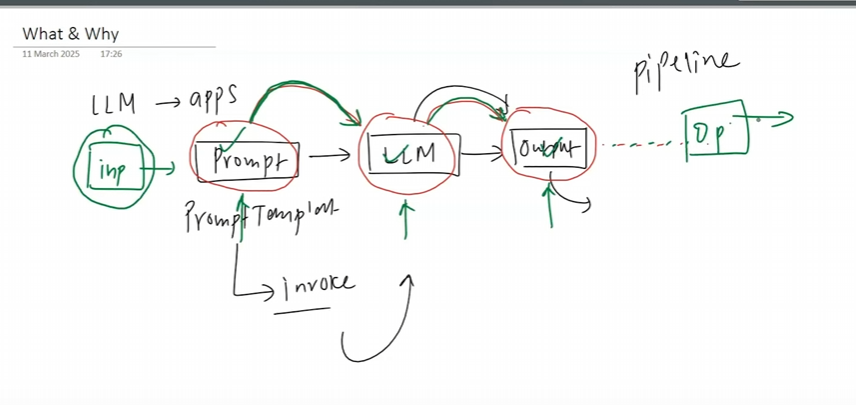 What & Why
11 March 2025 17:26
pipeline
LLM → apps
inp → Prompt → LLM → Output Op.
Prompt Templat
invoke